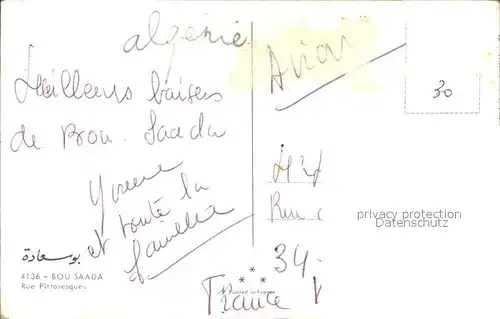 algérie
Avion
30
Meilleurs baisers
de Bou. Saada
Yvonne
et toute la
famille
Rue
34
France
privacy protection
Datenschutz
بوسعادة
4136 - BOU SAADA
Rue Pittoresque